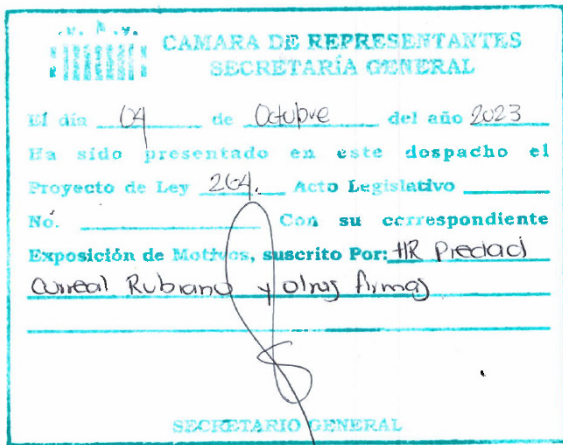 CAMARA DE REPRESENTANTES
SECRETARÍA GENERAL
El día 04 de Octubre del año 2023
Ha sido presentado en este despacho el
Proyecto de Ley 264. Acto Legislativo
No. Con su correspondiente
Exposición de Motivos, suscrito Por: HR Piedad
Correal Rubiano y otras firmas
SECRETARIO GENERAL